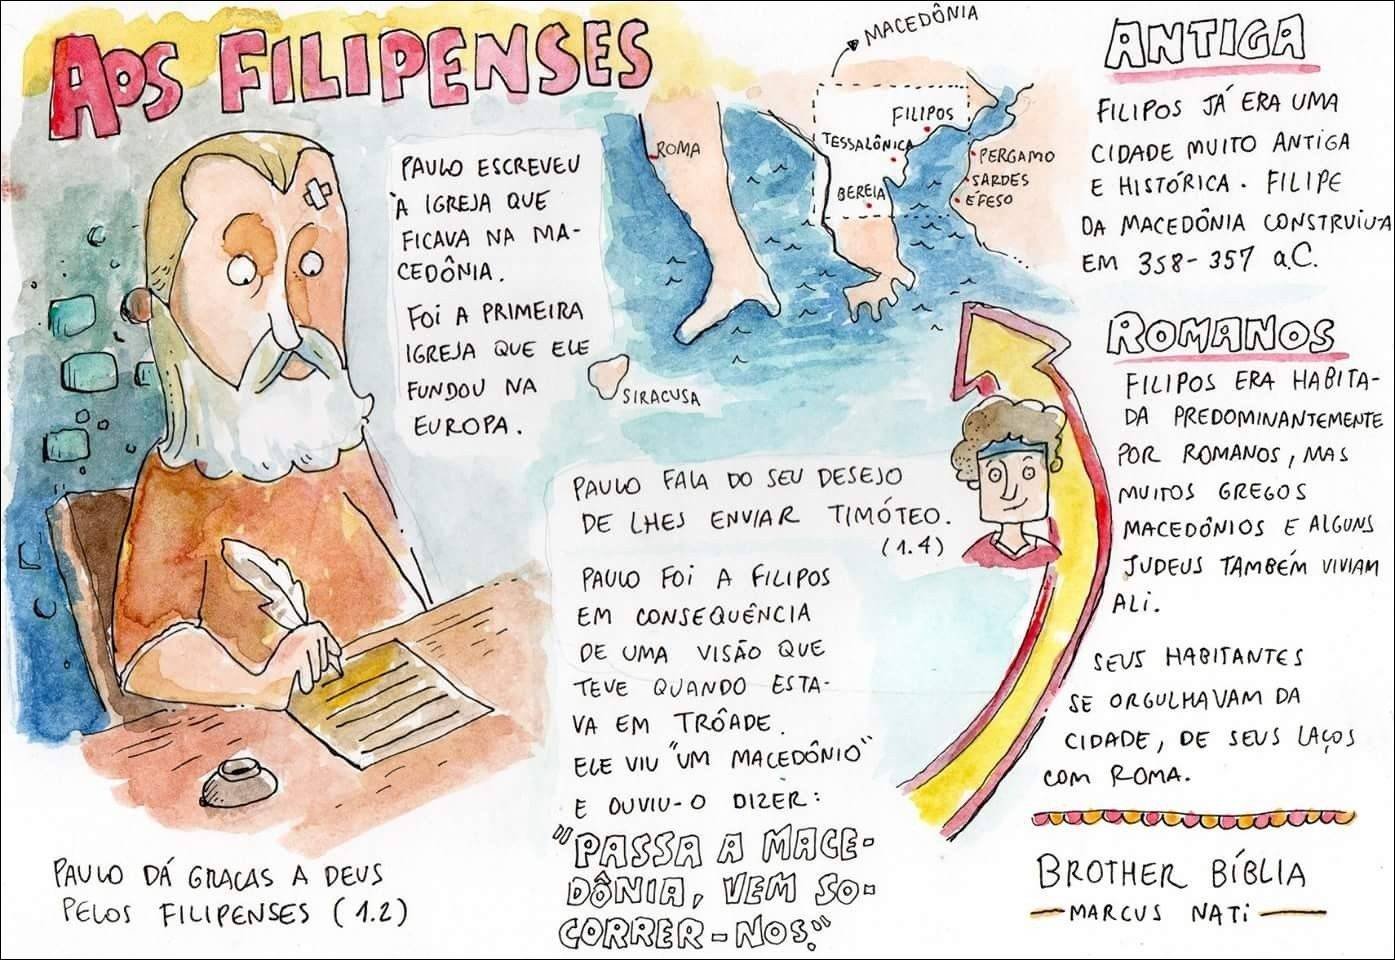 AOS FILIPENSES
PAULO ESCREVEU
À IGREJA QUE
FICAVA NA MA-
CEDÔNIA.
FOI A PRIMEIRA
IGREJA QUE ELE
FUNDOU NA
EUROPA.
MACEDÔNIA
FILIPOS
TESSALÔNICA
BEREIA
ROMA
PERGAMO
SARDES
ÉFESO
SIRACUSA
PAULO FALA DO SEU DESEJO
DE LHES ENVIAR TIMÓTEO.
(1.4)
PAULO FOI A FILIPOS
EM CONSEQUÊNCIA
DE UMA VISÃO QUE
TEVE QUANDO ESTA-
VA EM TRÔADE.
ELE VIU "UM MACEDÔNIO"
E OUVIU-O DIZER:
"PASSA A MACE-
DÔNIA, VEM SO-
CORRER-NOS."
PAULO DÁ GRACAS A DEUS
PELOS FILIPENSES (1.2)
ANTIGA
FILIPOS JÁ ERA UMA
CIDADE MUITO ANTIGA
E HISTÓRICA. FILIPE
DA MACEDÔNIA CONSTRUIU-A
EM 358-357 a.C.
ROMANOS
FILIPOS ERA HABITA-
DA PREDOMINANTEMENTE
POR ROMANOS, MAS
MUITOS GREGOS
MACEDÔNIOS E ALGUNS
JUDEUS TAMBÉM VIVIAM
ALI.
SEUS HABITANTES
SE ORGULHAVAM DA
CIDADE, DE SEUS LAÇOS
COM ROMA.
BROTHER BÍBLIA
MARCUS NATI